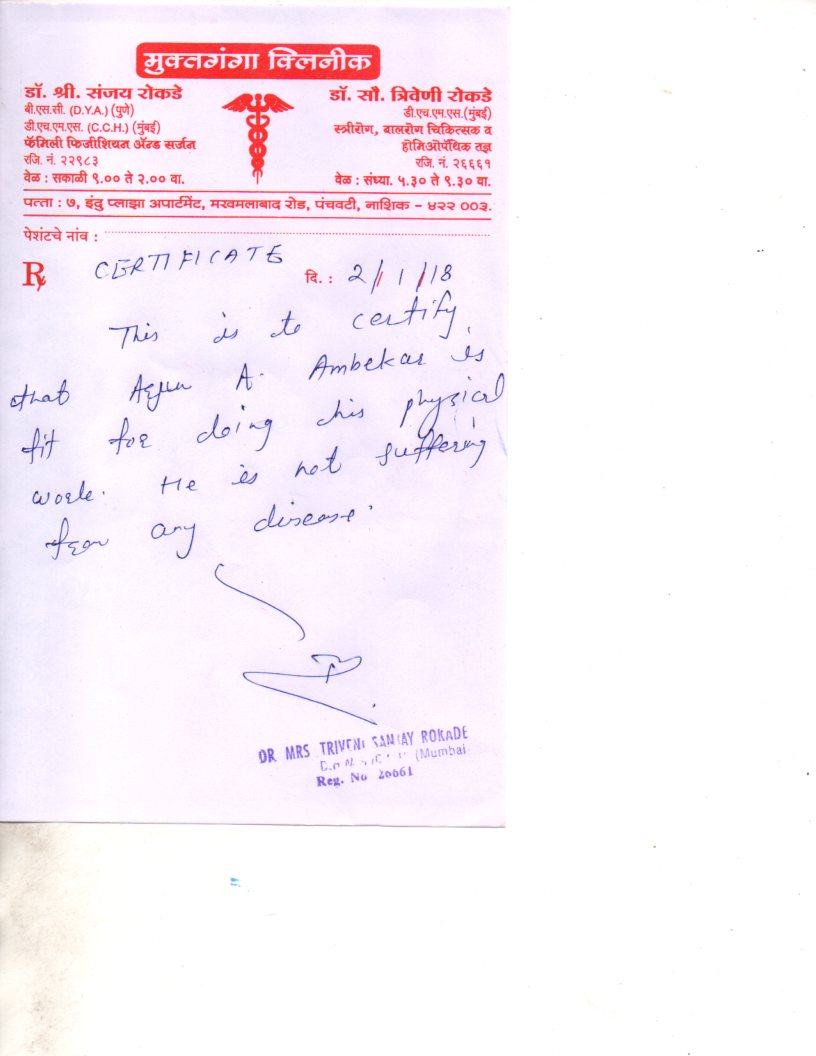 मुक्तगंगा क्लिनीक
डॉ. श्री. संजय रोकडे
बी.एस.सी. (D.Y.A.) (पुणे)
डी.एच.एम.एस. (C.C.H.) (मुंबई)
फॅमिली फिजीशियन ॲन्ड सर्जन
रजि. नं. २२९८३
वेळ : सकाळी ९.०० ते २.०० वा.
डॉ. सौ. त्रिवेणी रोकडे
डी.एच.एम.एस.(मुंबई)
स्त्रीरोग, बालरोग चिकित्सक व
होमिओपॅथिक तज्ञ
रजि. नं. २६६६१
वेळ : संध्या. ५.३० ते ९.३० वा.
पत्ता : ७, इंदु प्लाझा अपार्टमेंट, मखमलाबाद रोड, पंचवटी, नाशिक - ४२२ ००३.
पेशंटचे नांव :
Rx CERTIFICATE दि. : 2/1/18
This is to certify
that A. Ambekar is
fit for doing his physical
work. He is not suffering
from any disease.
DR MRS TRIVENI SANJAY ROKADE
(Mumbai
Reg. No 26661